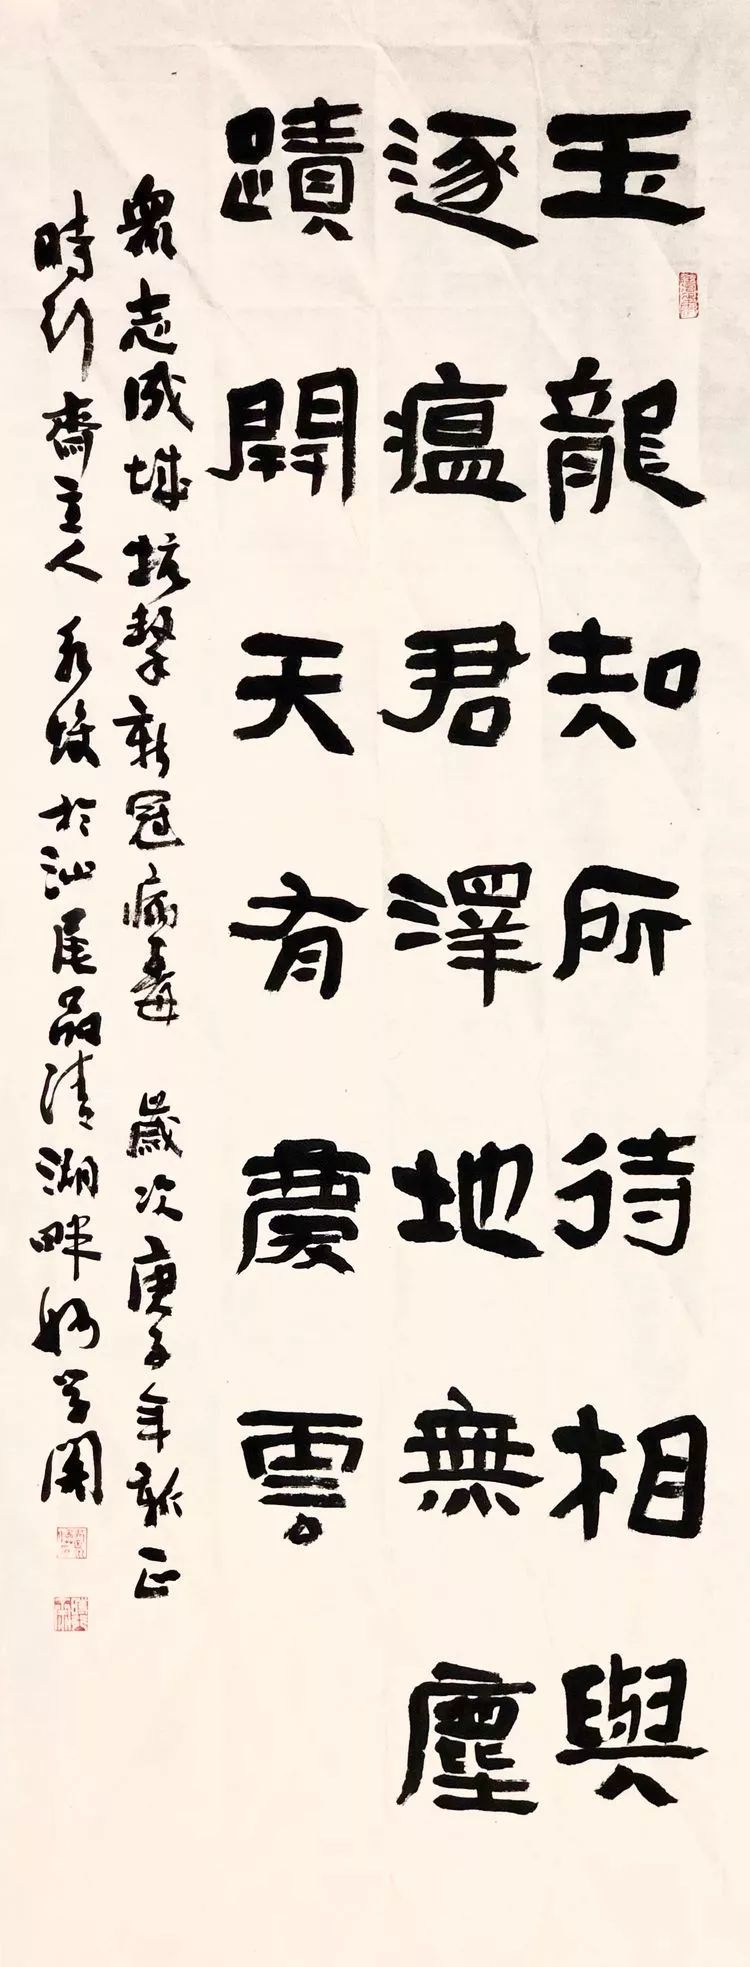 玉龍知所待相與
逐瘟君澤地無塵
蹟開天有慶雲
眾志成城抗擊新冠病毒 歲次庚子年新正
時行齋主人 永 於汕尾品清湖畔 學